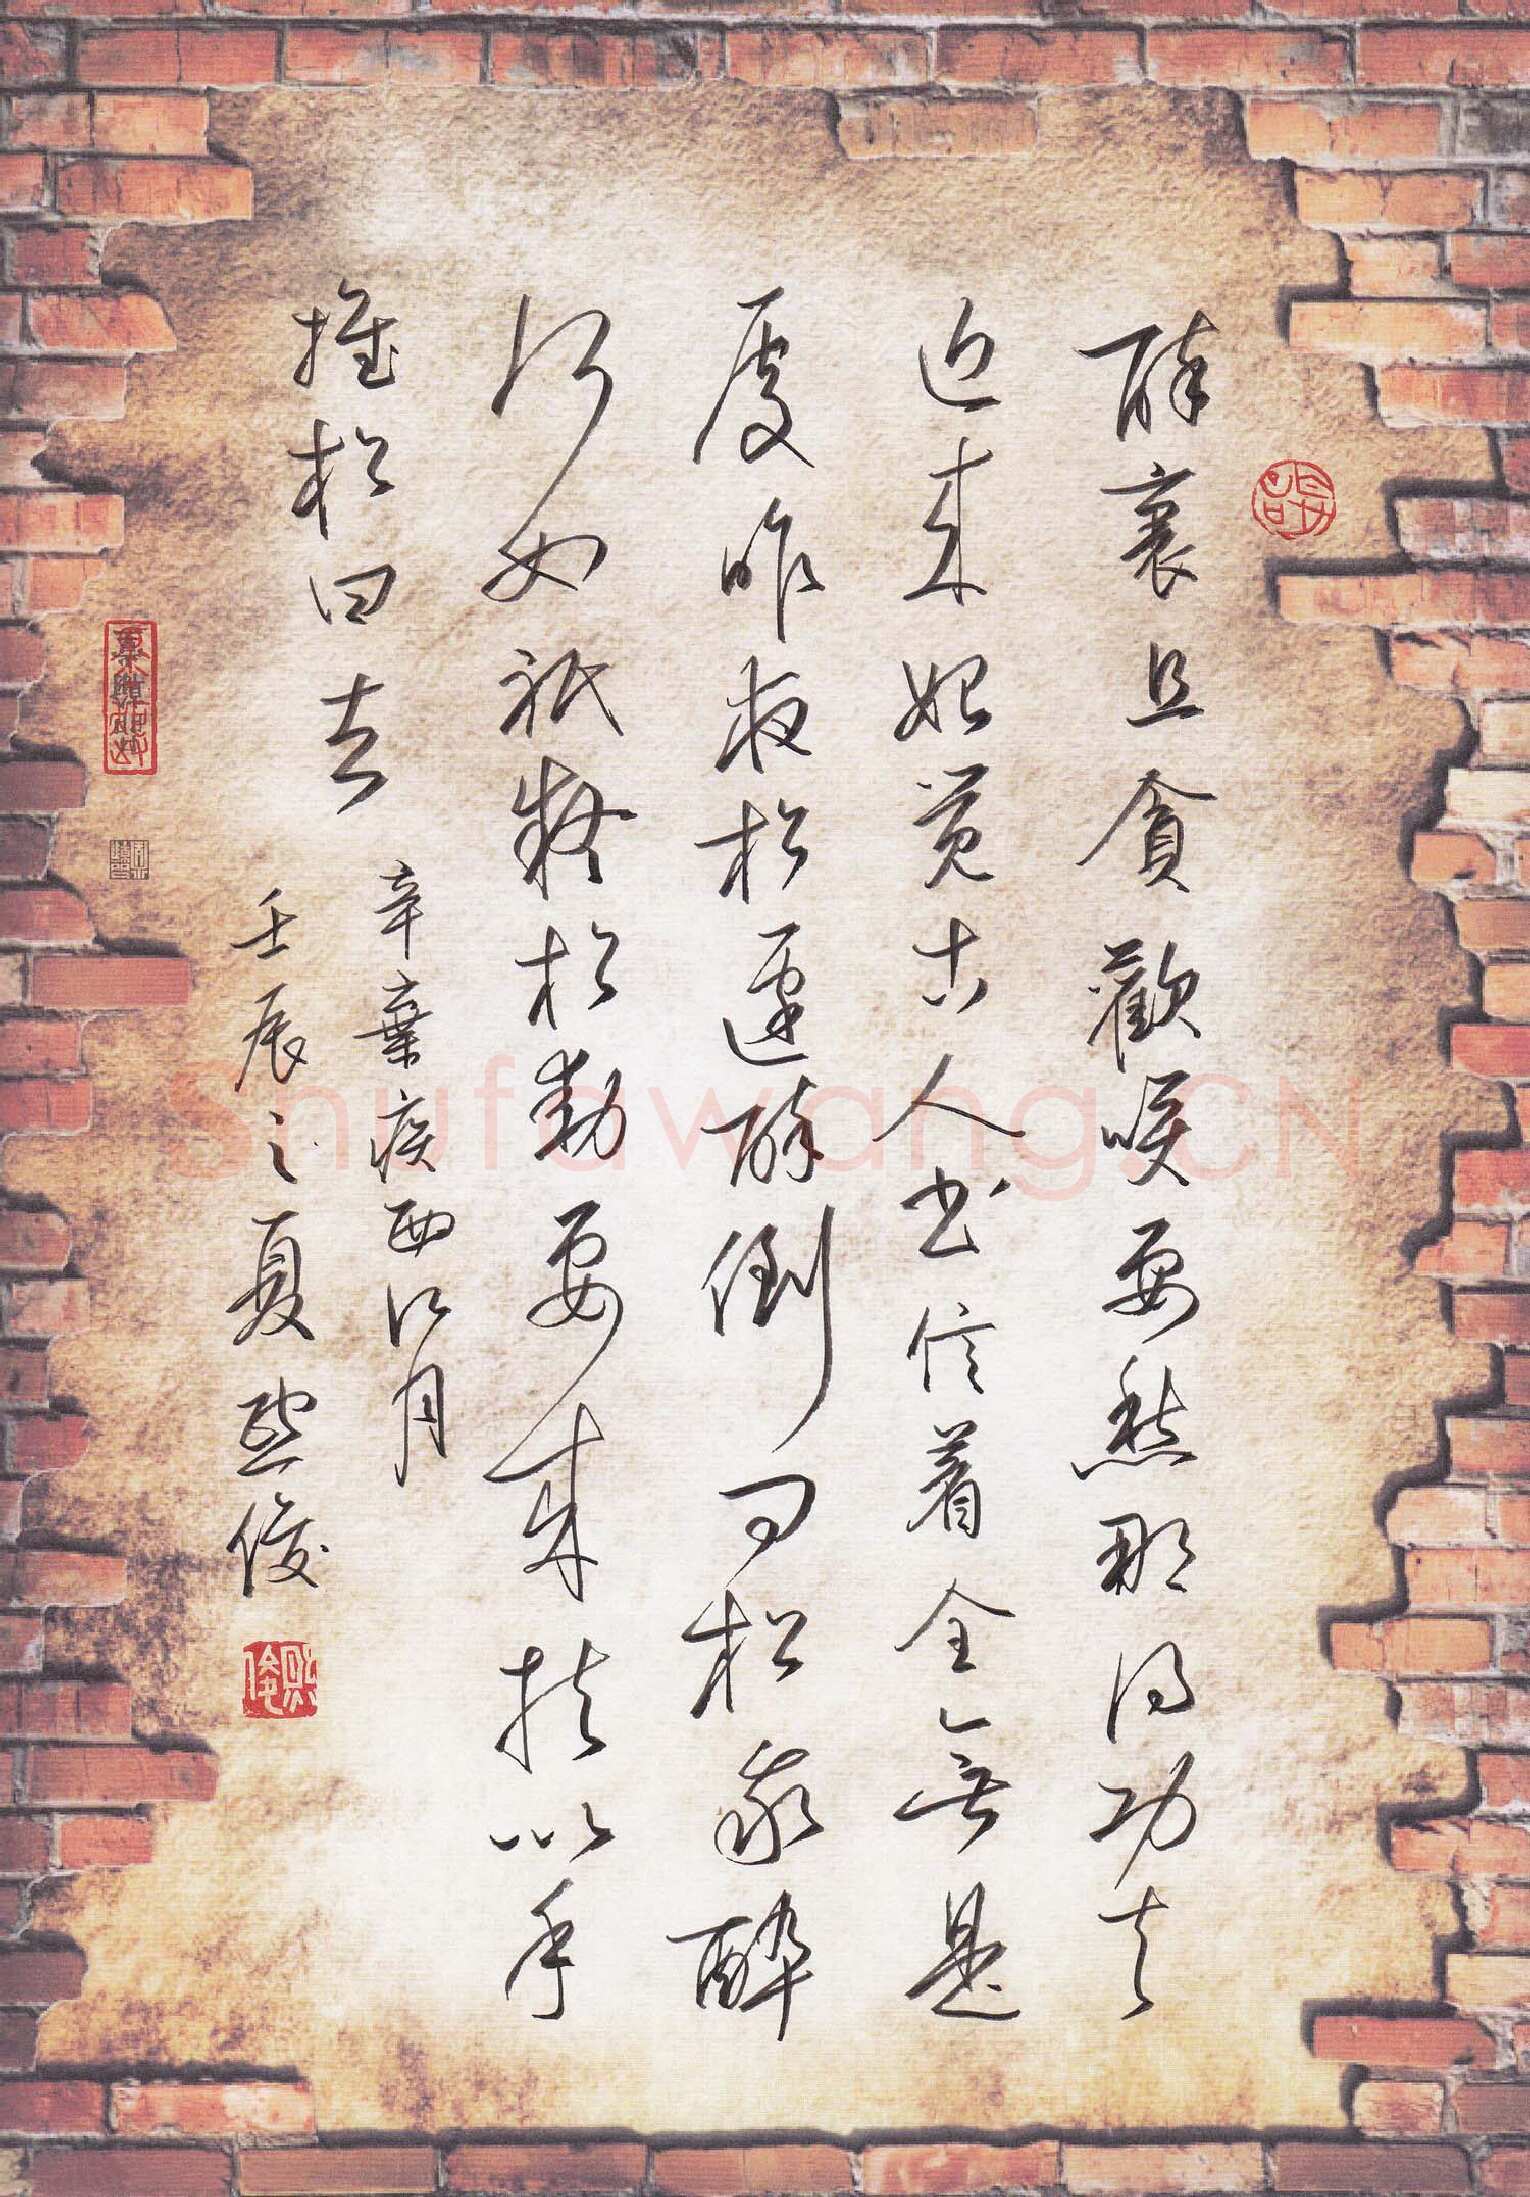 醉裏且貪歡咲要愁那得功夫
近来始觉古人书信着全無是
處昨夜松邊醉倒问松我醉
何如祇疑松動要来扶以手
推松曰去
辛棄疾西江月
壬辰之夏熙俊
Shufawang.CN